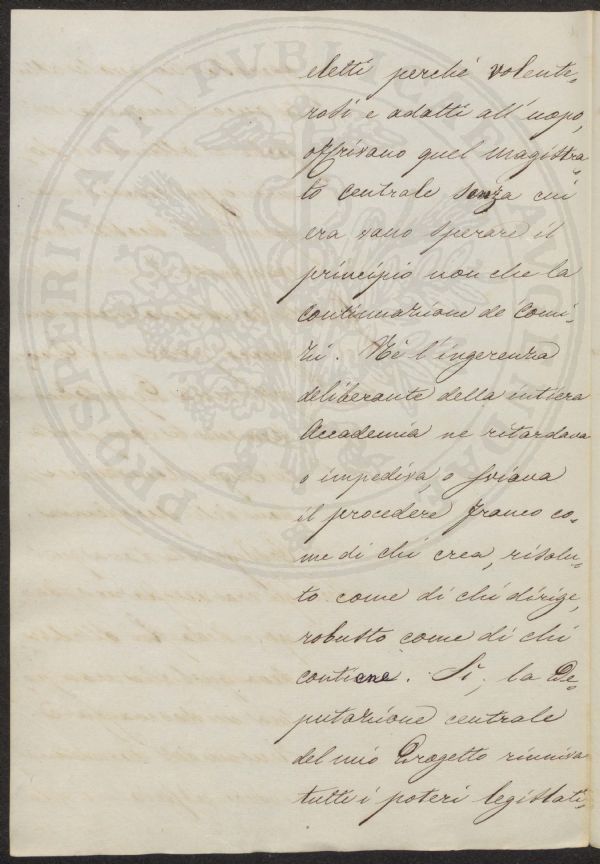 eletti perché volente-
rosi e adatti all'uopo,
offrivano quel magistra-
to centrale senza cui
era vano sperare il
principio non che la
continuazione de Comi-
zii. Nè l'ingerenza
deliberante della intiera
Accademia ne ritardava
o impediva o sviava
il procedere franco co-
me di chi crea, risolu-
to come di chi dirige,
robusto come di chi
contiene. Sì, la De-
putazione centrale
del mio Progetto riuniva
tutti i poteri legislati-
PROSPERITATI PUBLICAE AUGENDAE